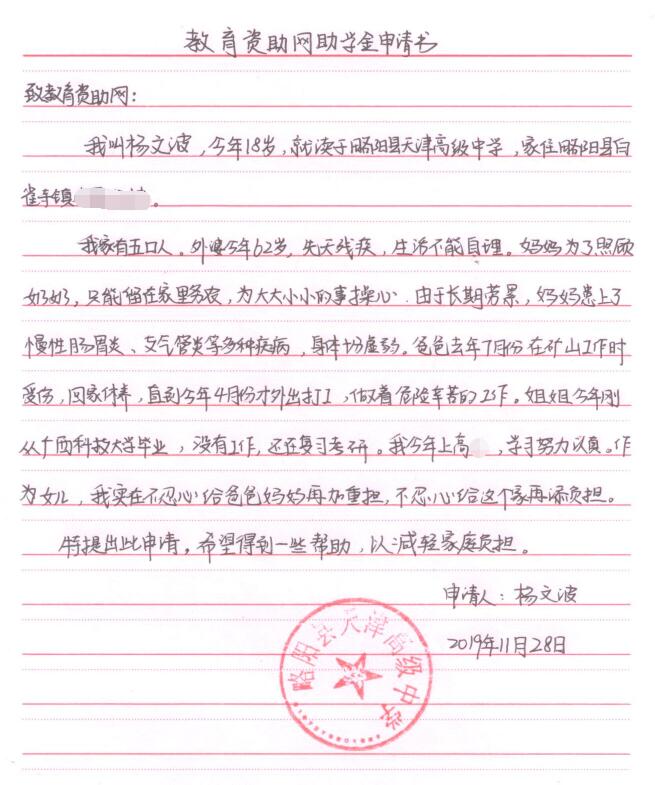 教育资助网助学金申请书
致教育资助网：
我叫杨文波，今年18岁，就读于略阳县天津高级中学，家住略阳县白
雀寺镇。
我家有五口人。外婆今年62岁，先天残疾，生活不能自理。妈妈为了照顾
奶奶，只能留在家里务农，为大大小小的事操心．由于长期劳累，妈妈患上了
慢性肠胃炎、支气管炎等多种疾病，身体十分虚弱。爸爸去年7月份在矿山工作时
受伤，回家休养，直到今年4月份才外出打工，做着危险辛苦的工作。姐姐今年刚
从广西科技大学毕业，没有工作，还在复习考研。我今年上高，学习努力认真。作
为女儿，我实在不忍心给爸爸妈妈再加重担，不忍心给这个家再添负担。
特提出此申请，希望得到一些帮助，以减轻家庭负担。
申请人：杨文波
2019年11月28日
略阳县天津高级中学